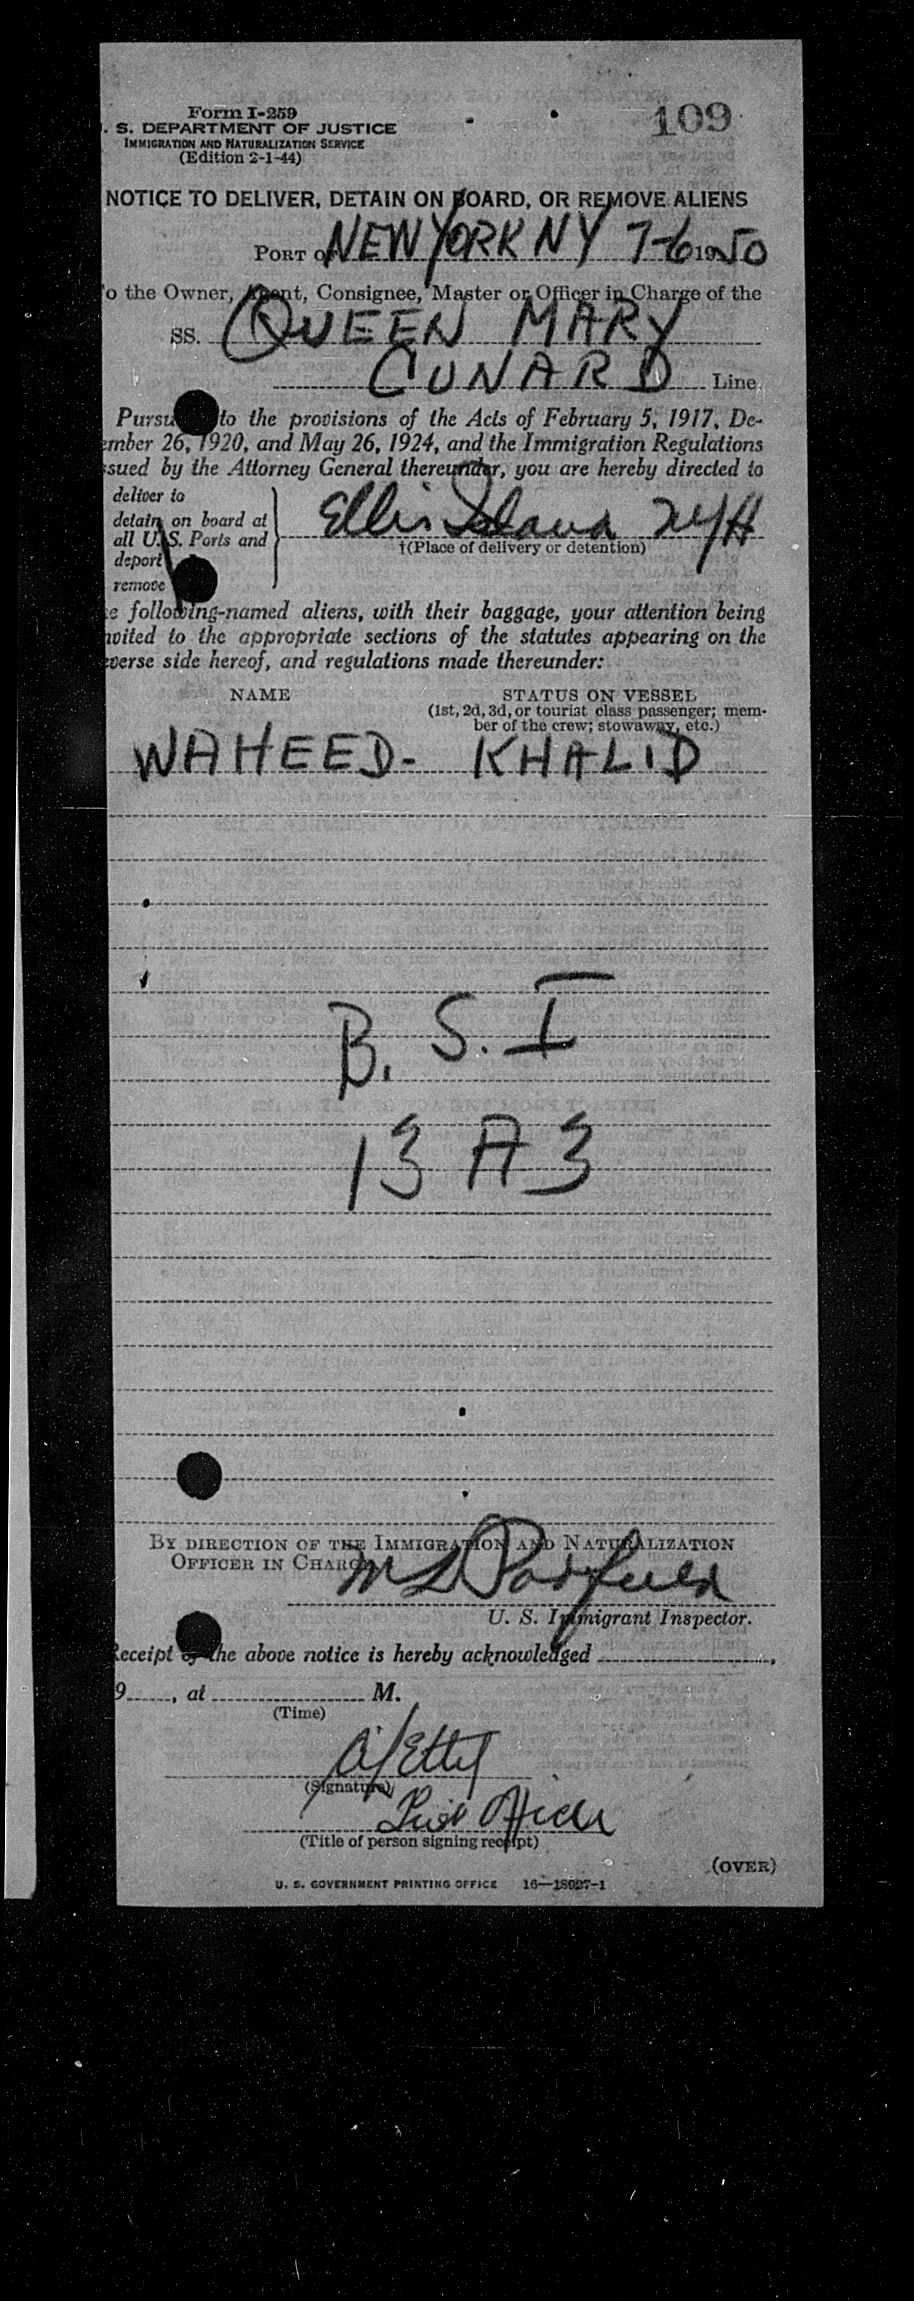 Form I-259
109
. S. DEPARTMENT OF JUSTICE
IMMIGRATION AND NATURALIZATION SERVICE
(Edition 2-1-44)
NOTICE TO DELIVER, DETAIN ON BOARD, OR REMOVE ALIENS
PORT OF NEW YORK NY 7-6 1950
o the Owner, Agent, Consignee, Master or Officer in Charge of the
SS. QUEEN MARY
CUNARD Line.
Pursu to the provisions of the Acts of February 5, 1917, De-
ember 26, 1920, and May 26, 1924, and the Immigration Regulations
ssued by the Attorney General thereunder, you are hereby directed to
deliver to
detain on board at
all U. S. Ports and
deport
remove
Ellis Island NYH
†(Place of delivery or detention)
e following-named aliens, with their baggage, your attention being
nvited to the appropriate sections of the statutes appearing on the
verse side hereof, and regulations made thereunder:
NAME
STATUS ON VESSEL
(1st, 2d, 3d, or tourist class passenger; mem-
ber of the crew; stowaway, etc.)
WAHEED- KHALID
B. S. I
13 A 3
BY DIRECTION OF THE IMMIGRATION AND NATURALIZATION
OFFICER IN CHARGE
U. S. Immigrant Inspector.
Receipt of the above notice is hereby acknowledged ,
9 , at M.
(Time)
(Signature)
Officer
(Title of person signing receipt)
(OVER)
U. S. GOVERNMENT PRINTING OFFICE 16—18027-1